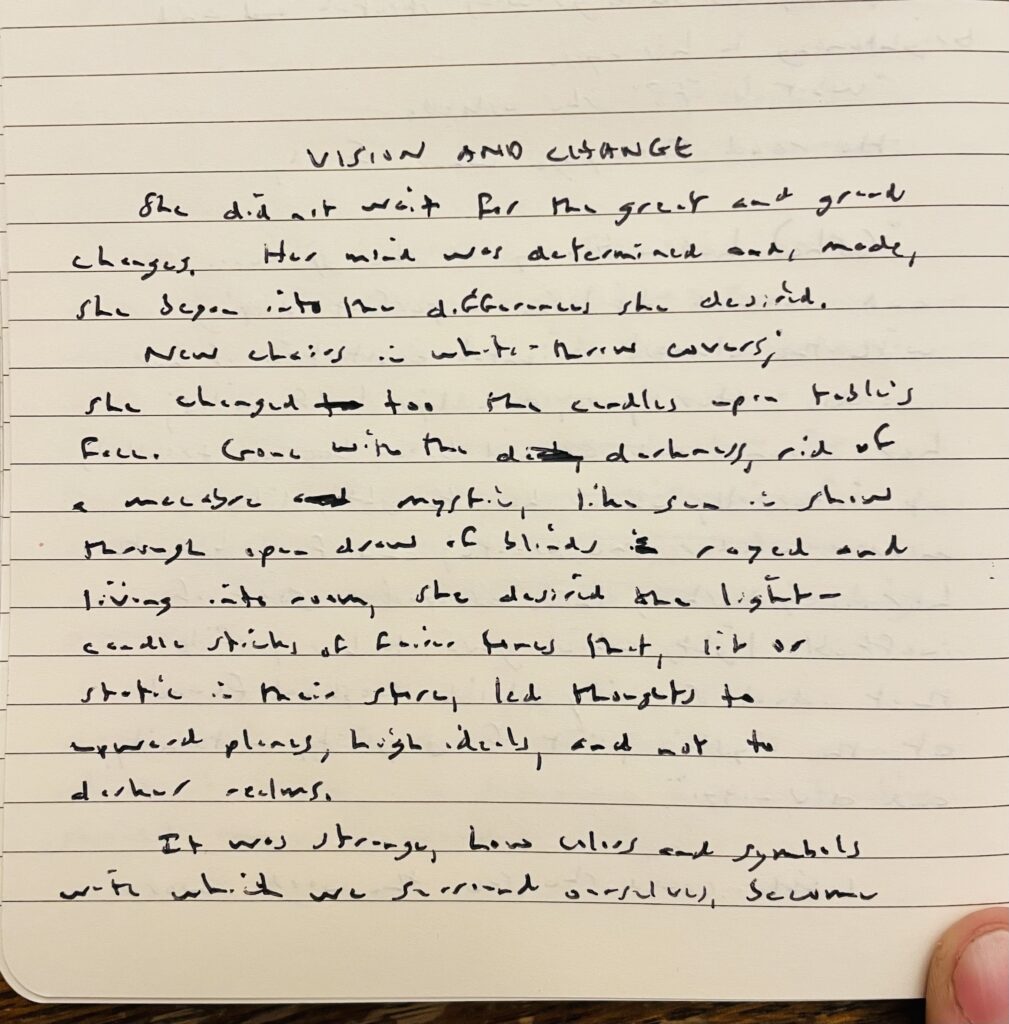 VISION AND CHANGE
She did not wait for the great and grand
changes. Her mind was determined and, made,
she began into the differences she desired.
New chairs in white-throw covers;
she changed to too the candles upon table's
face. Gone with the darkness, rid of
a macabre and mystic, like sun in shine
through open draw of blinds is rayed and
living into room, she desired the light-
candle sticks of fairer tones that, lit or
static in their store, led thoughts to
upward planes, high ideals, and not to
darker realms.
It was strange, how colors and symbols
with which we surround ourselves, become